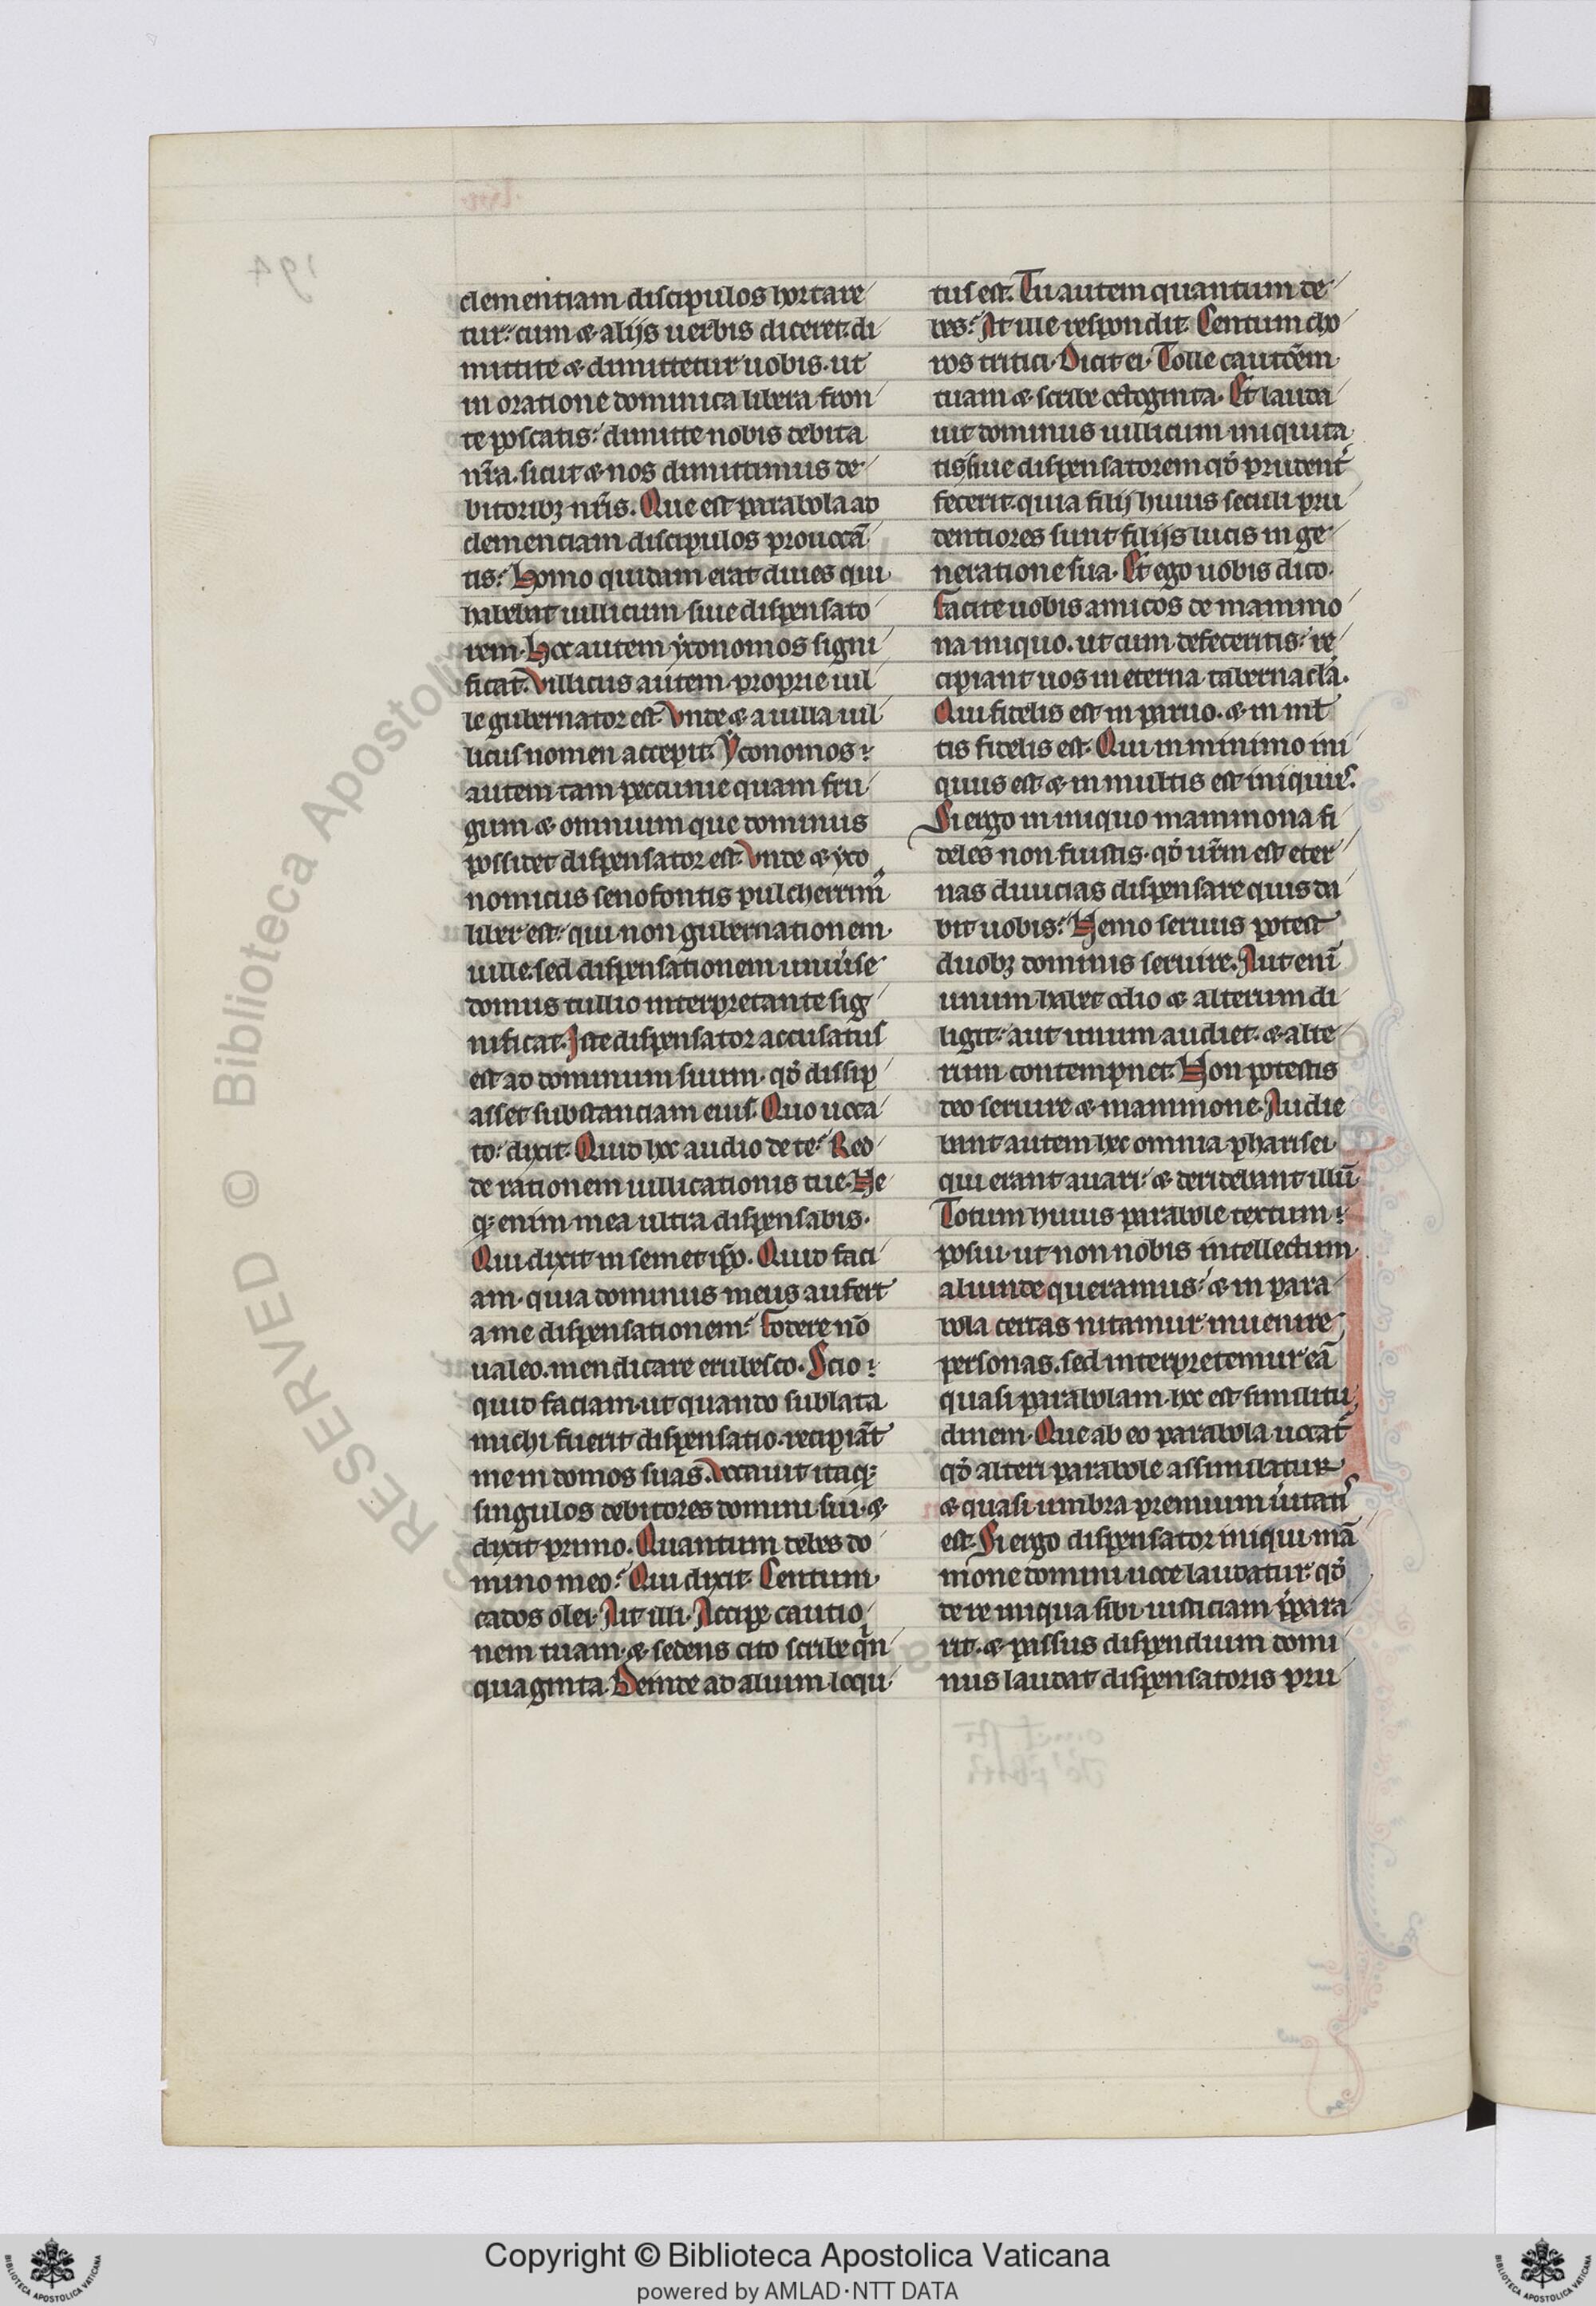 clementiam discipulos hortare
tur: cum & alijs uerbis diceret. di
mittite & dimittetur uobis. ut
in oratione dominica libera fron
te poscatis: dimitte nobis debita
nr̄a. sicut & nos dimittimus de
bitoribꝫ nr̄is. Que est parabola ad
clemenciam discipulos prouocā
tis: Homo quidam erat diues qui
habebat uillicum siue dispensato
rem. Hoc autem yconomos signi
ficat. Villicus autem proprie uil
le gubernator est. Vnde & a uilla uil
licus nomen accepit. Yconomos:
autem tam peccunie quam fru
gum & omnium que dominus
possidet dispensator est. Vnde & yco
nomicus senofontis pulcherrimꝰ
liber est: qui non gubernationem
uille. sed dispensationem uniu̾se
domus tullio interpretante sig
nificat. Iste dispensator accusatus
est ad dominum suum. qd̾ dissip
asset substanciam eius. Quo uoca
to: dixit. Quid hoc audio de te: Red
de rationem uillicationis tue. Ne
qꝫ enim mea ultra dispensabis.
Qui dixit in semet ip̄o. Quid faci
am. quia dominus meus aufert
a me dispensationem: Fodere nō
ualeo. mendicare erubesco. Scio:
quid faciam. ut quando sublata
michi fuerit dispensatio. recipiāt
me in domos suas. Vocauit itaqꝫ
singulos debitores domini sui. &
dixit primo. Quantum debes do
mino meo: Qui dixit. Centum
cados olei. Ait illi. Accipe cautio
nem tuam. & sedens cito scribe qn̄
quaginta. Deinde ad alium locqu
tus est. Tu autem quantum de
bes: At ille respondit. Centum cho
ros tritici. Dicit ei. Tolle cautōem
tuam & scribe octoginta. Et lauda
uit dominus uillicum iniquita
tis siue dispensatorem qd̾ prudent̾
fecerit. quia filij huius seculi pru
dentiores sunt filijs lucis in ge
neratione sua. Et ego uobis dico.
facite uobis amicos de mammo
na iniquo. ut cum defeceritis: re
cipiant uos in eterna tabernacl̾a.
Qui fidelis est in paruo. & in ml̾
tis fidelis est. Qui in minimo ini
quus est & in multis est iniquus.
Si ergo in iniquo mammona fi
deles non fuistis. qd̾ ur̄m est eter
nas diuicias dispensare quis da
bit uobis: Nemo seruus potest
duobꝫ dominis seruire. Aut enī
unum habet odio & alterum di
ligit: aut unum audiet. & alte
rum contempnet. Non potestis
deo seruire & mammone. Audie
bant autem hec omnia pharisei
qui erant auari: & deridebant illū
Totum huius parabole textum:
posui. ut non nobis intellectum
aliunde queramus: & in para
bola certas nitamur inuenire
personas. sed interpretemur eā
quasi parabolam. hoc est similitu
dinem. Que ab eo parabola uocat̾
qd̾ alteri parabole assimilatur
& quasi umbra premium u̾itatꝭ
est. Si ergo dispensator iniqui mā
mone domini uoce laudatur. qd̾
de re iniqua sibi iusticiam p̾para
rit. & passus dispendium domi
nus laudat dispensatoris pru
Copyright © Biblioteca Apostolica Vaticana
powered by AMLAD·NTT DATA